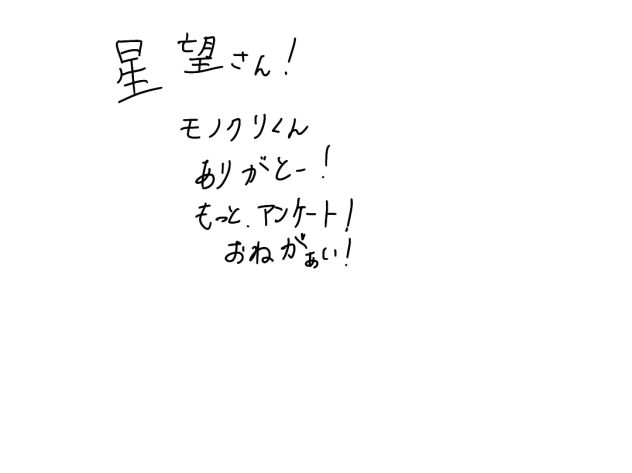 星望さん!
モノクリくん
ありがとー!
もっと.アンケート!
おねがぁい!